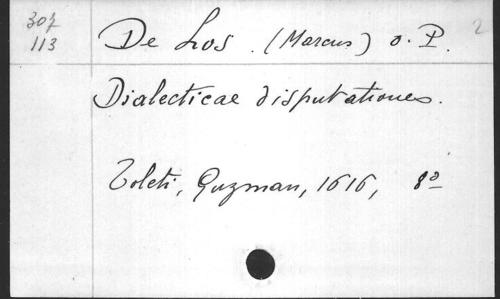 307
113
De Los . (Marcus) O. P.
2
Dialecticae disputationes.
Toleti, Guzman, 1616, 8º